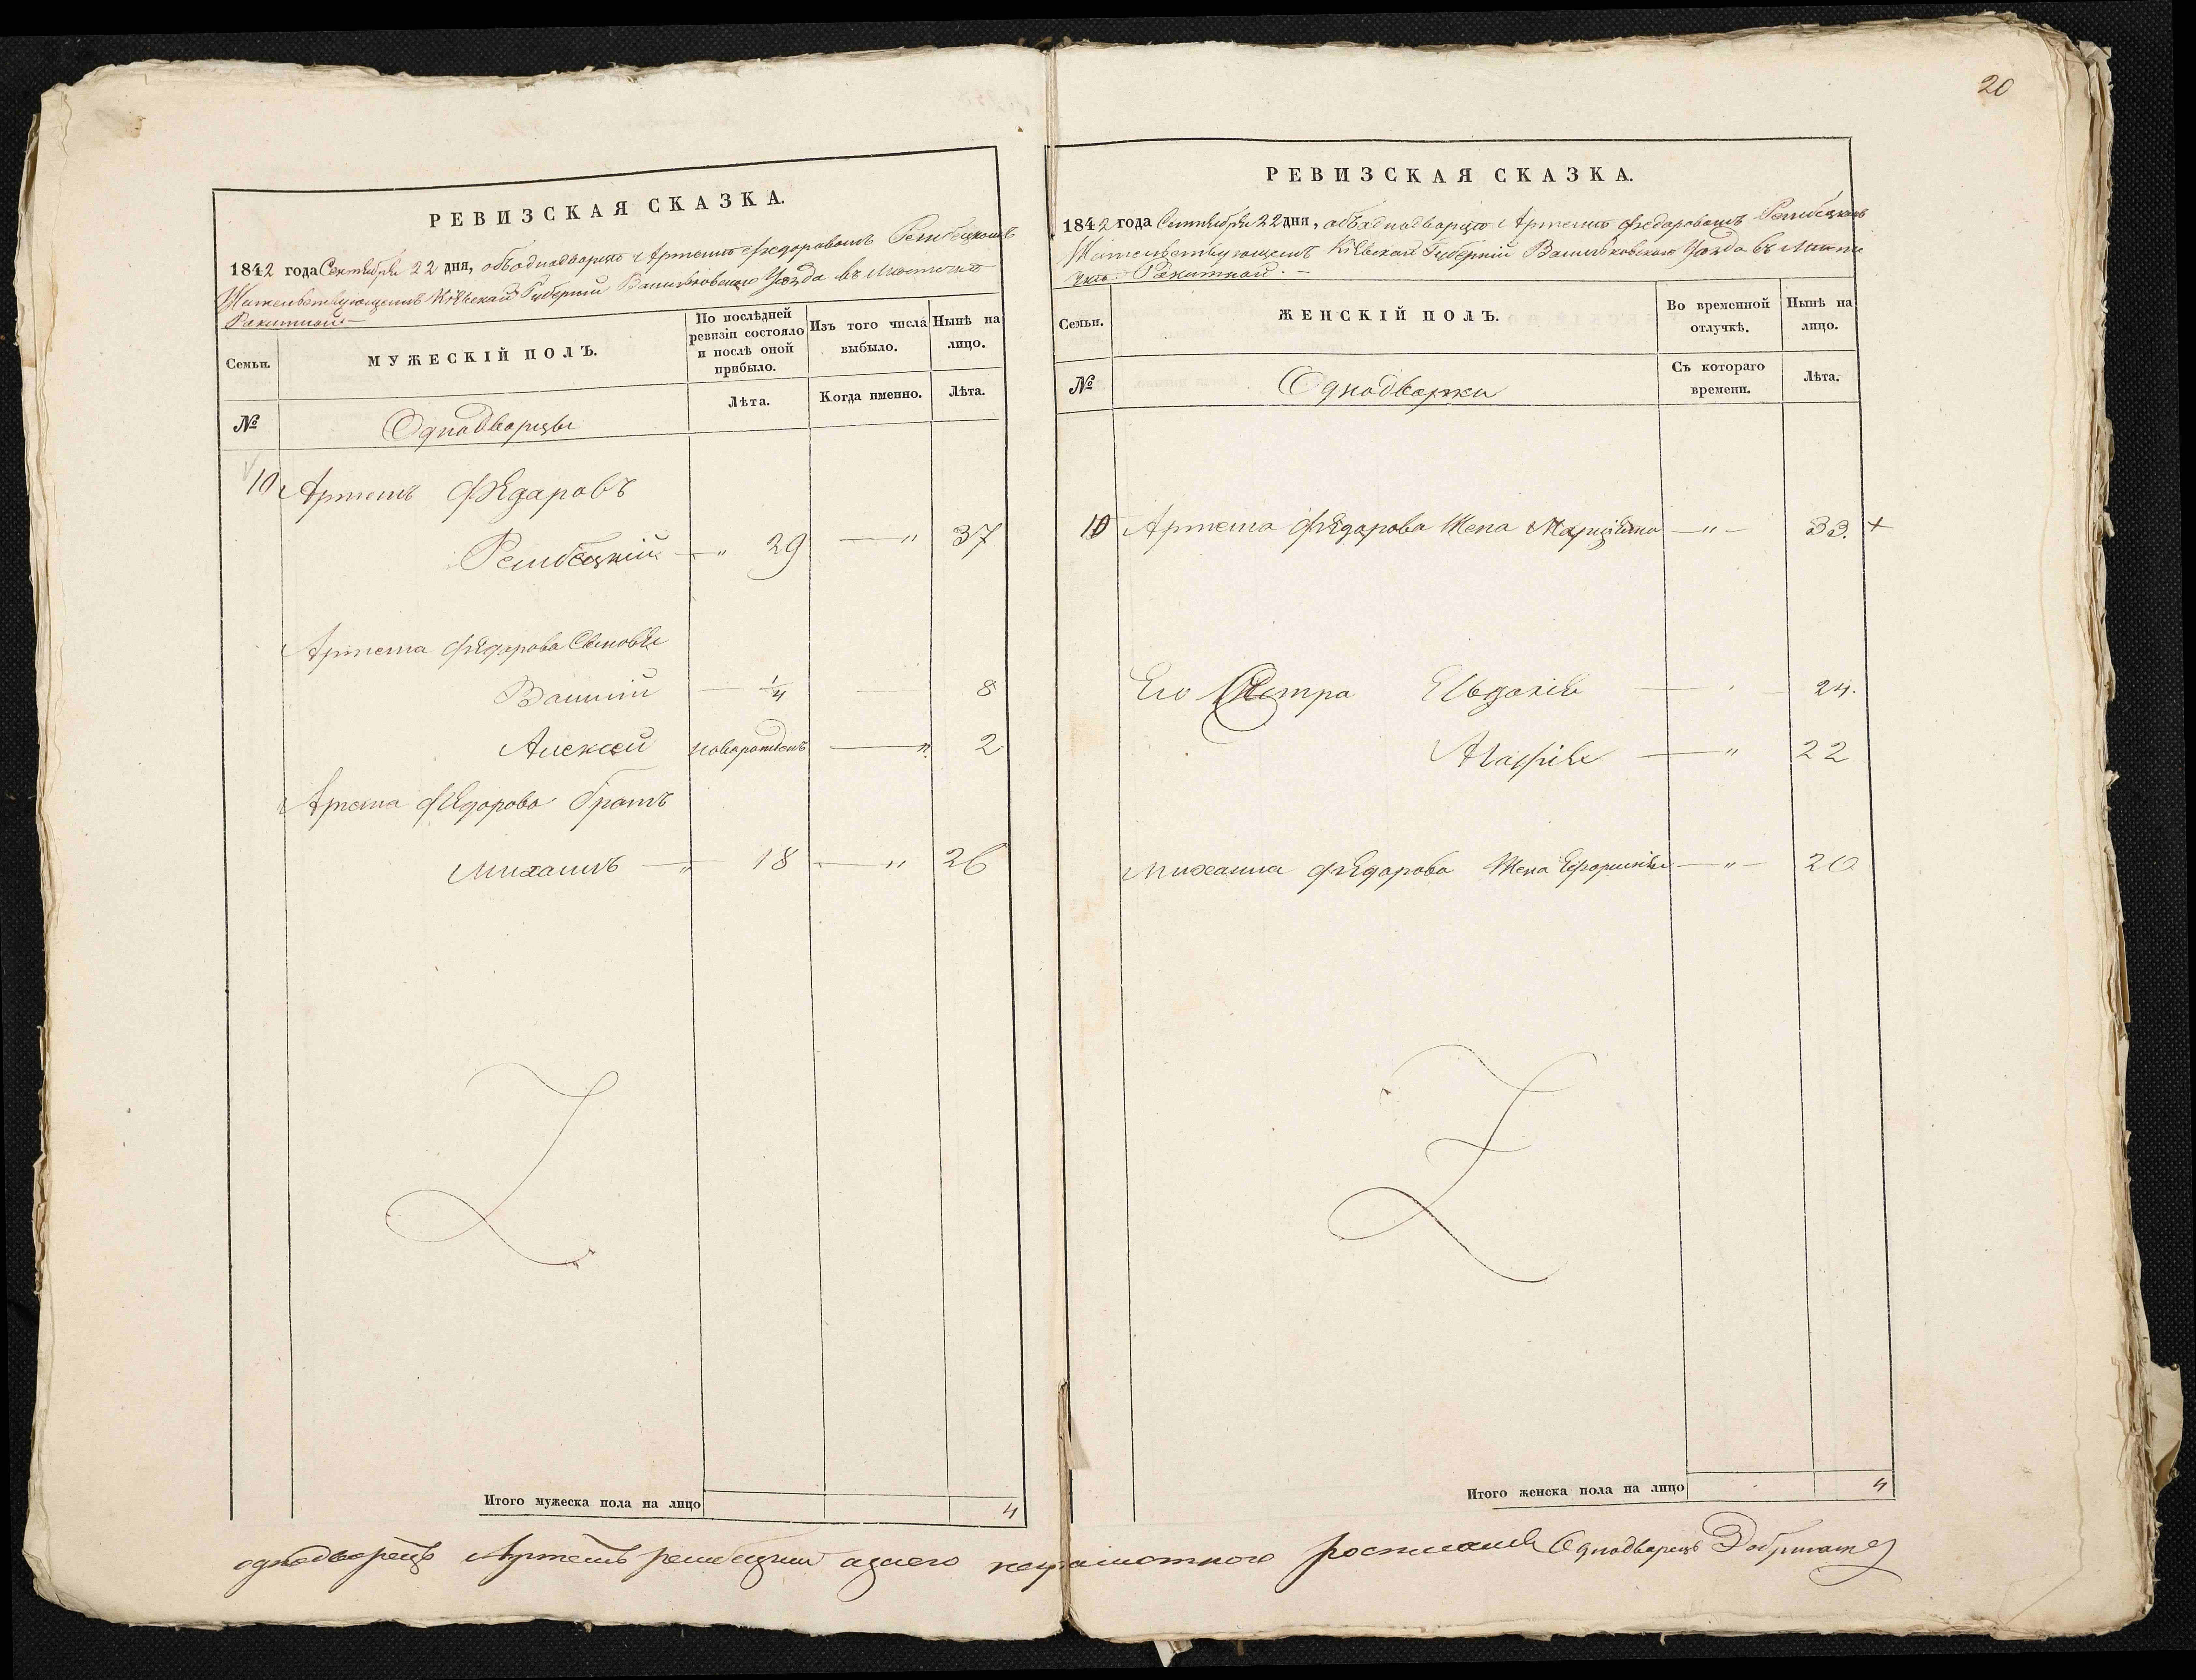 20
РЕВИЗСКАЯ СКАЗКА.
1842 года Сентября 22 дня, объ однодворце Артеме Федоровомъ Рембецкомъ
Жительствующемъ Кіевской Губерніи Васильковскаго Уезда въ Местечке
Ракитной
Семьи.
МУЖЕСКІЙ ПОЛЪ.
По послѣдней ревизіи состояло и послѣ оной прибыло.
Изъ того числа выбыло.
Нынѣ на лицо.
№
Однодворцы
Лѣта.
Когда именно.
Лѣта.
10 Артемъ Федаровъ
Рембецкій — " 29 — " 37
Артема Федарова Сыновья
Василій — 1/4 — 8
Алексей новорожденъ — " 2
Артема Федорова братъ
Михаилъ — " 18 — " 26
Итого мужеска пола на лицо 4
РЕВИЗСКАЯ СКАЗКА.
1842 года Сентября 22 дня, объ однодворце Артеме Федоровомъ Рембецкомъ
Жительствующемъ Кіевской Губерніи Васильковскаго Уезда въ Месте
чке Ракитной. —
Семьи.
ЖЕНСКІЙ ПОЛЪ.
Во временной отлучкѣ.
Нынѣ на лицо.
№
Однодворки
Съ котораго времени.
Лѣта.
10 Артема Федарова Жена — " — 33. +
Его Сестра Евдокія — 24.
Агафія — " 22
Михаила Федарова Жена Ефросинія — " — 20
Итого женска пола на лицо 4
однодворецъ Артемъ рембецкий азанего неграмотного росписался Однодворецъ